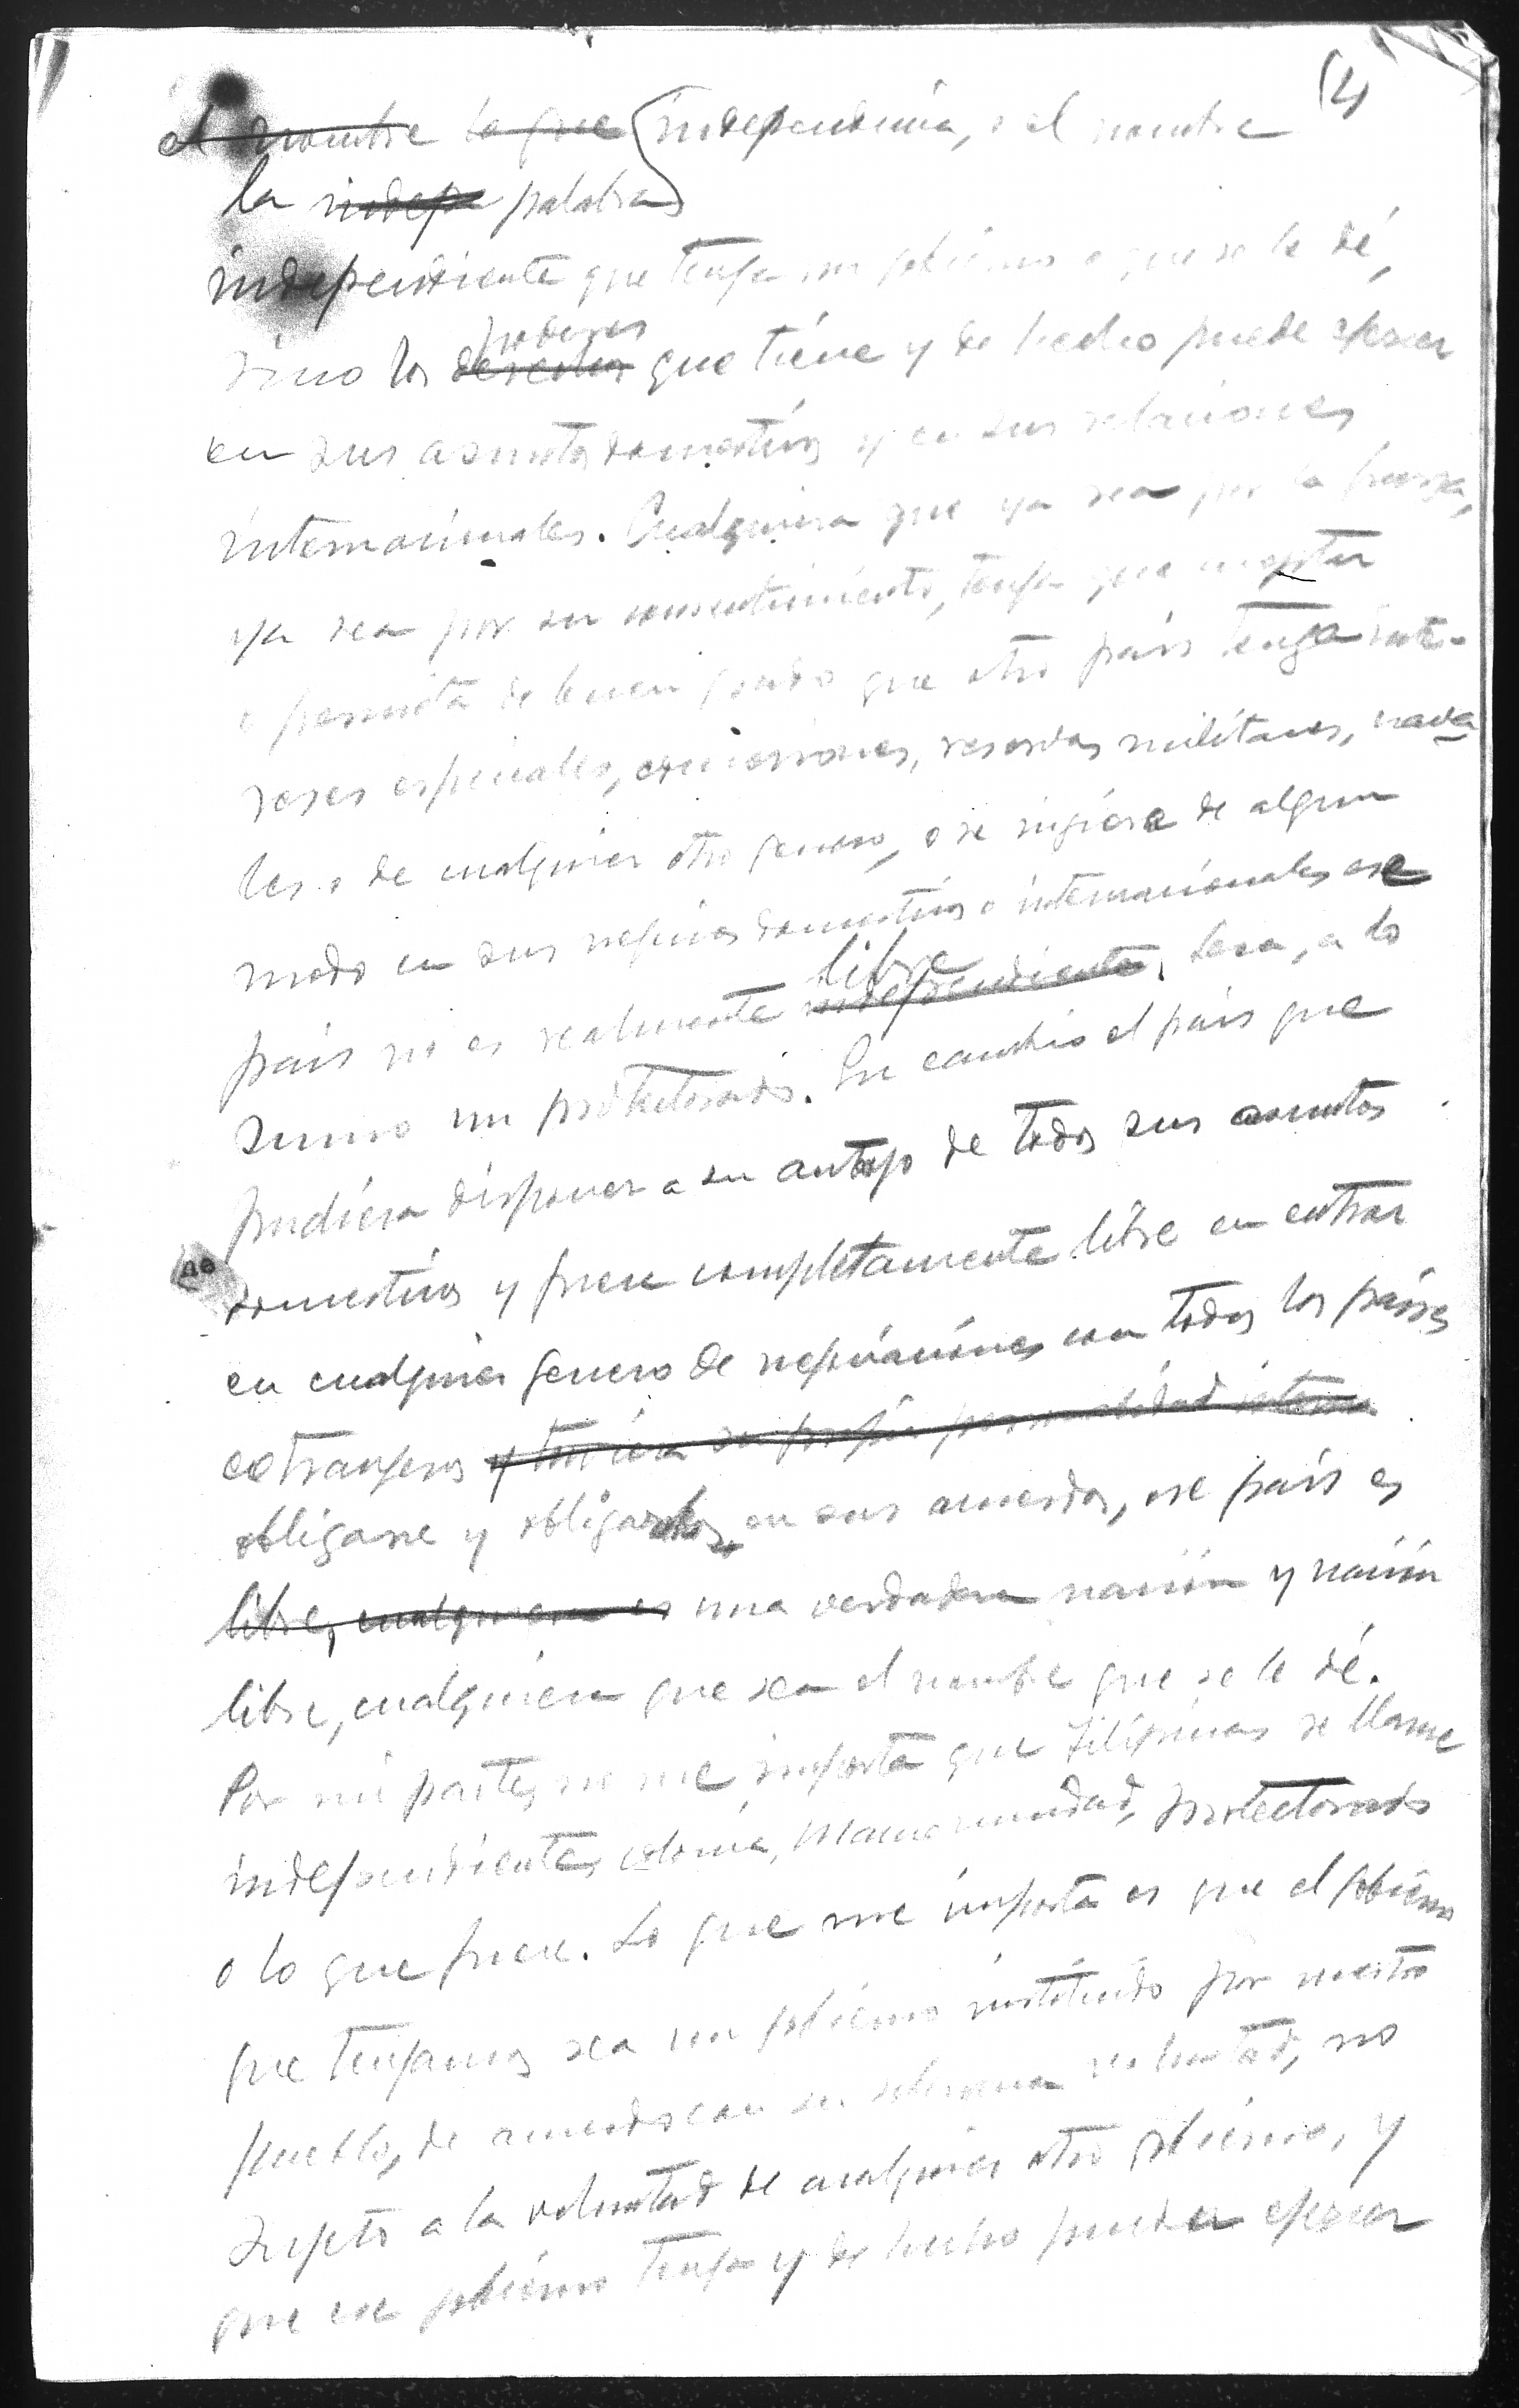 (4
el nombre lo que (independencia, o el nombre
la indep palabra)
independiente que tenga un gobierno o que se le dé,
sino los derechos poderes que tiene y de hecho puede ejercer
en sus asuntos domesticos y en sus relaciones
internacionales. Cualquiera que ya sea por la fuerza,
ya sea por su consentimiento, tenga que aceptar
o permita de buen grado que otro pais tenga inte-
reses especiales, concesiones, reservas militares, nava
les o de cualquier otro genero, o se ingiera de algun
modo en sus negocios domesticos o internacionales ese
pais no es realmente independiente libre. Sera, a lo
sumo un protectorado. En cambio el pais que
pudiera disponer a su antojo de todos sus asuntos
domesticos y fuere completamente libre en entrar
en cualquier genero de negociaciones con todos los paises
extranjeros y tuviera su propia personalidad interna
obligarse y obligarlos en sus acuerdos, ese pais es
libre, cualquiera es una verdadera nación y nación
libre, cualquiera que sea el nombre que se le dé.
Por mi parte, no me importa que Filipinas se llame
independiente, colonia, Mancomunidad, protectorado
o lo que fuere. Lo que me importa es que el gobierno
que tengamos sea un gobierno instituido por nuestro
pueblo, de acuerdo con su soberana voluntad, no
sujeto a la voluntad de cualquier otro gobierno, y
que ese gobierno tenga y de hecho pueda ejercer